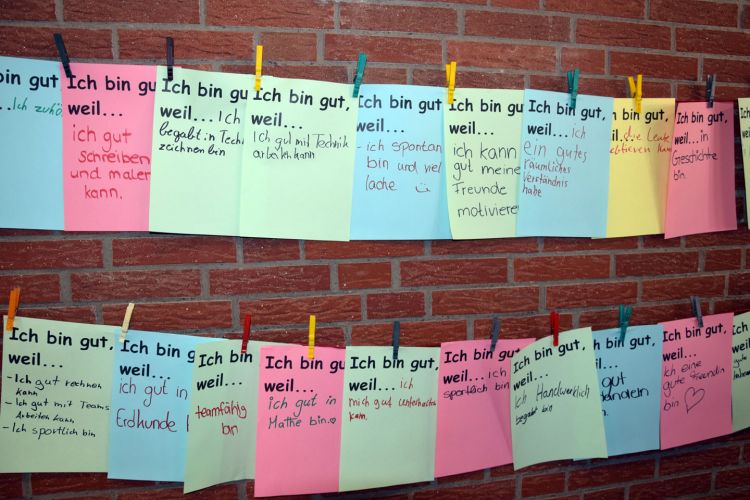 bin gut
Ich zuhö
Ich bin gu
weil...
ich gut
Schreiben
und maler
kann.
Ich bin gu
weil... Ich
begabt in Tech
zeichnen bin
Ich bin gut,
weil...
Ich gut mit Technik
arbeiten kann
Ich bin gut
weil...
- ich spontan
bin und viel
lache
Ich bin gut
weil...
ich kann
gut meine
Freunde
motiviere
Ich bin gut,
weil... Ich
ein gutes
räumliches
Verständnis
habe
n gut,
die Leute
Ich bin gut,
weil... in
Greschichte
bin.
Ich bin gut,
weil...
- Ich gut rechnen
kann
- Ich gut mit Teams
Arbeiten kann
- Ich sportlich bin
Ich bin g
weil...
ich gut in
Erdkunde
Ich bin g
weil...
teamfähig
bin
Ich bin gut
weil...
ich gut in
Mathe bin.
Ich bin gut,
weil... ich
mich gut unterhalten
kann.
Ich bin gut,
weil... ich
sportlich bin
Ich bin gut,
weil...
Ich Handwerklich
begabt bin
bin gut,
gut
Ich bin gut
weil...
Ich eine
gute freundin
bin ♡
Ich
weil
gute